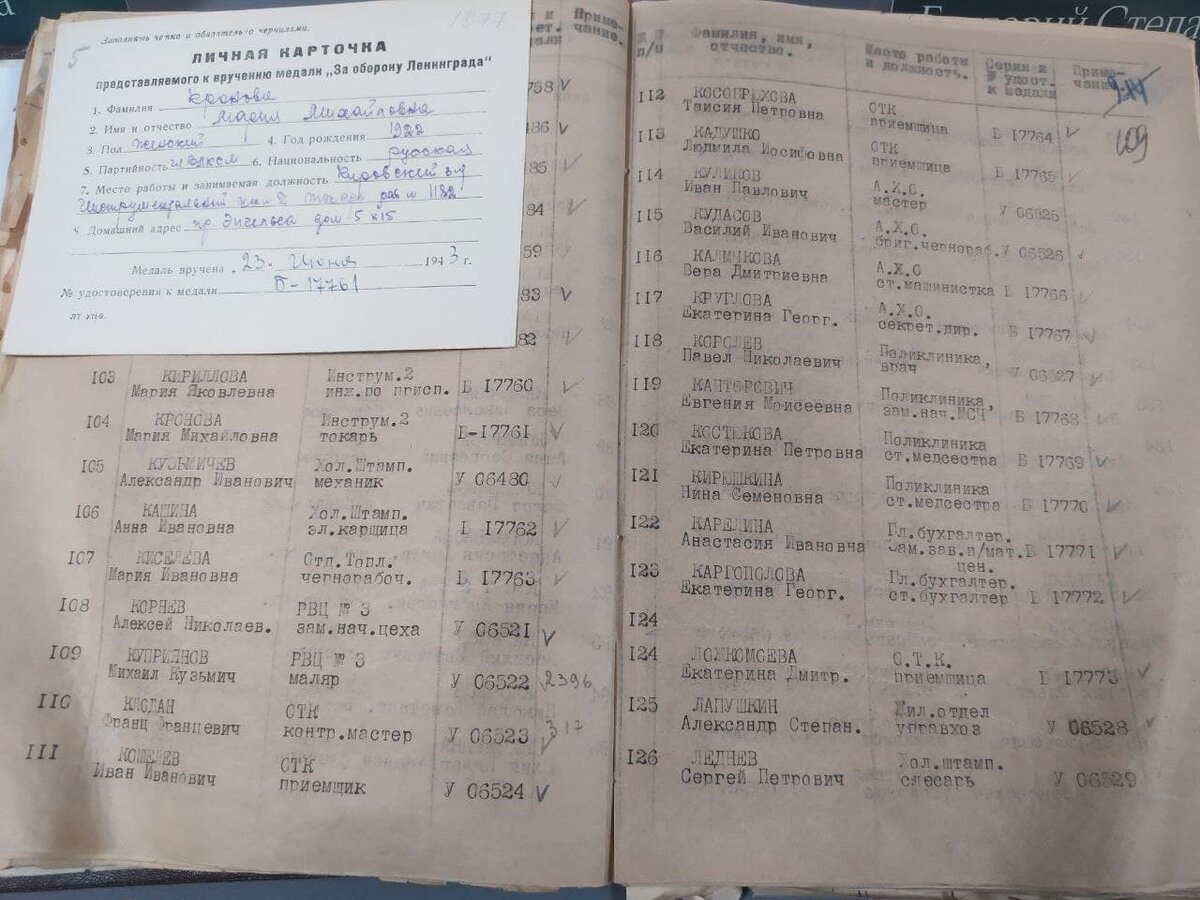 Екатерий Степа
1877
5
Заполнять четко и обязательно чернилами.
ЛИЧНАЯ КАРТОЧКА
представляемого к вручению медали „За оборону Ленинграда"
1. Фамилия Кронова
2. Имя и отчество Мария Михайловна
3. Пол женский 4. Год рождения 1922
5. Партийность чл ВЛКСМ 6. Национальность русская
7. Место работы и занимаемая должность Кировский з-д
Инструментальный цех 2 токарь раб № 1182
8. Домашний адрес пр. Энгельса дом 5 к 15
Медаль вручена 23. Июня 1943 г.
№ удостоверения к медали Б-17761
и Приме-
ет. чание.
дали
758 ✓
186 ✓
85 ✓
84 ✓
59 ✓
83 ✓
82 ✓
103 КИРИЛЛОВА Инструм.2
Мария Яковлевна инж.по присп. Б 17760 ✓
104 КРОНОВА Инструм.2
Мария Михайловна токарь Б-17761 ✓
105 КУЗЬМИЧЕВ Хол.Штамп.
Александр Иванович механик У 06480 ✓
106 КАШИНА Хол.Штамп.
Анна Ивановна эл.карщица Б 17762 ✓
107 КИСЕЛЕВА Отд.Топл.
Мария Ивановна чернорабоч. Б 17763 ✓
108 КОРНЕВ РВЦ № 3
Алексей Николаев. зам.нач.цеха У 06521 ✓
109 КУПРИЯНОВ РВЦ № 3
Михаил Кузьмич маляр У 06522 2396
110 КЛОДАН ОТК
Франц Францевич контр.мастер У 06523 ✓ 317
111 КОШЕЛЕВ ОТК
Иван Иванович приемщик У 06524 ✓
п/п Фамилия, имя, отчество. Место работы и должность. Серия и № удост. к медали Приме- чание
109
112 КОСОБРЮХОВА ОТК
Таисия Петровна приемщица Б 17764 ✓
113 КАДУШКО ОТК
Людмила Иосифовна приемщица Б 17765 ✓
114 КУЛИКОВ А.Х.О.
Иван Павлович мастер У 06525
115 КУДАСОВ А.Х.О.
Василий Иванович бриг.чернораб. У 06526 ✓
116 КАЛМЫКОВА А.Х.О
Вера Дмитриевна ст.машинистка Б 17766 ✓
117 КРУГЛОВА А.Х.О.
Екатерина Георг. секрет.дир. Б 17767 ✓
118 КОРОЛЕВ Поликлиника,
Павел Николаевич врач У 06527 ✓
119 КАНТОРОВИЧ Поликлиника,
Евгения Моисеевна зам.нач.МСЧ Б 17768 ✓
120 КОСТЮКОВА Поликлиника
Екатерина Петровна ст.медсестра Б 17769 ✓
121 КИРЮШКИНА Поликлиника
Нина Семеновна ст.медсестра Б 17770 ✓
122 КАРЕЛИНА Гл.бухгалтер.
Анастасия Ивановна Зам.зав.п/мат. Б 17771 ✓
цен.
123 КАРГОПОЛОВА Гл.бухгалтер.
Екатерина Георг. ст.бухгалтер Б 17772 ✓
124
124 ЛОЖКОМОЕВА О.Т.К.
Екатерина Дмитр. приемщица Б 17773 ✓
125 ЛАПУШКИН Жил.отдел
Александр Степан. управхоз У 06528 ✓
126 ЛЕДНЕВ Хол.штамп.
Сергей Петрович слесарь У 06529